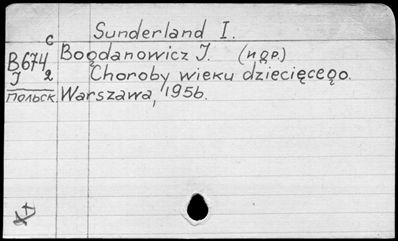 Sunderland I.
С
В674 Bogdanowicz J. (и др.)
J 2 Choroby wieku dziecięcego.
польск Warszawa, 1956.